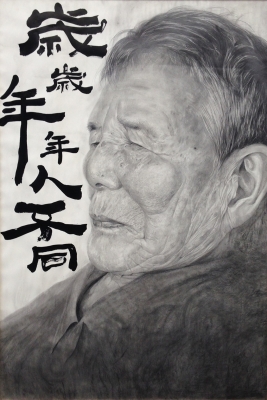 歲歲年年人不同